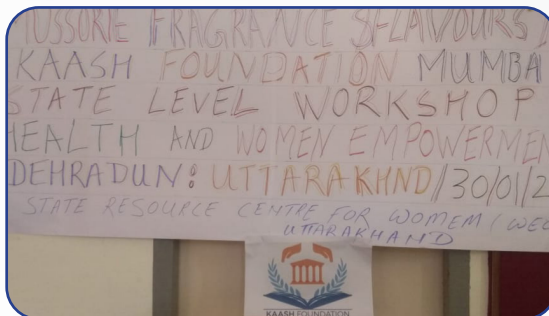 TUSSORIE FRAGRANCE & FLAVOURS
KAASH FOUNDATION MUMBAI
STATE LEVEL WORKSHOP
HEALTH AND WOMEN EMPOWERMEN
DEHRADUN: UTTARAKHND/30/01/2
STATE RESOURCE CENTRE FOR WOMEM (WEC
UTTARAKHAND
KAASH FOUNDATION